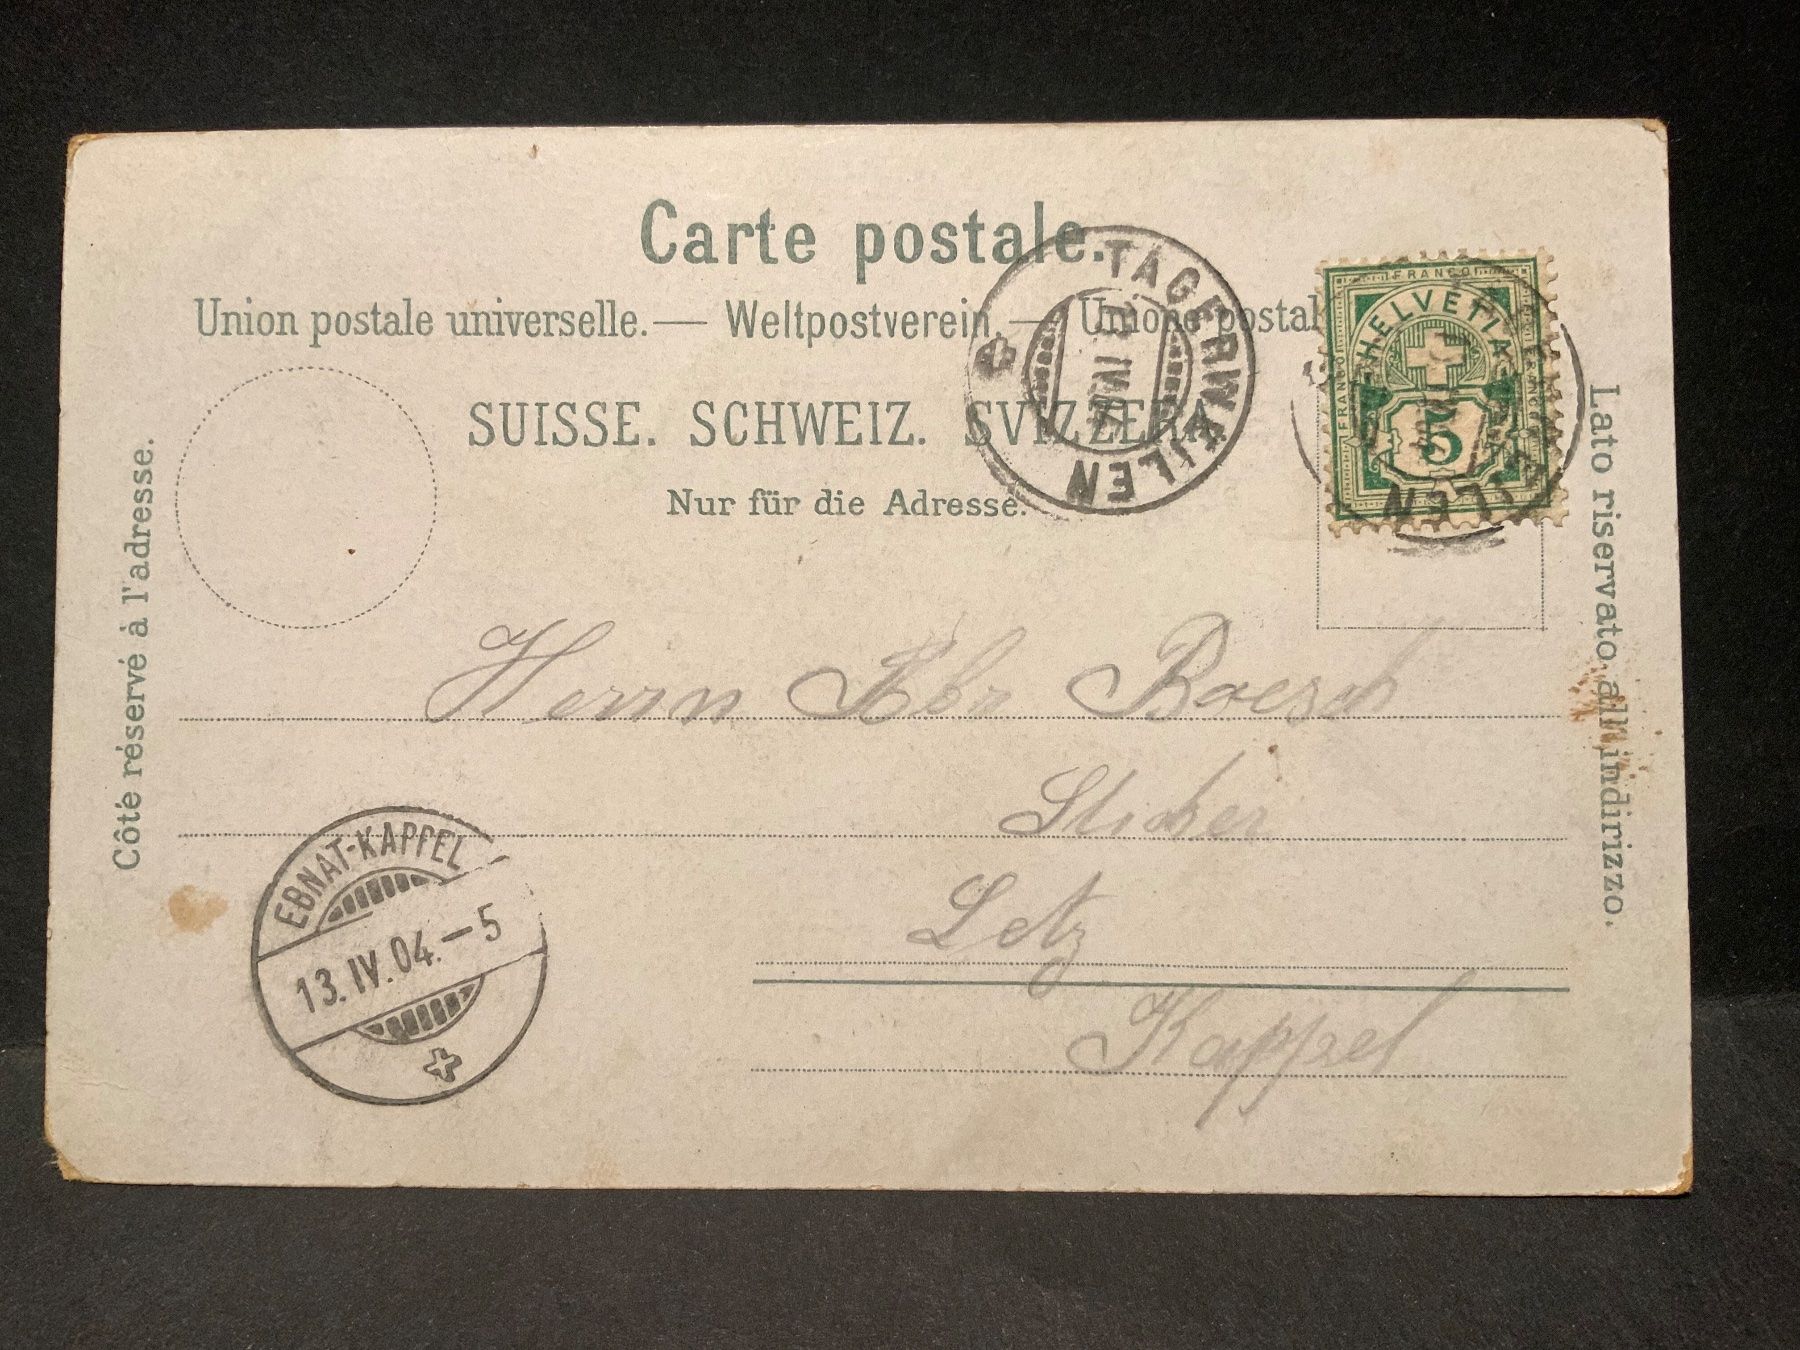 Carte postale.
Union postale universelle. — Weltpostverein. — Unione postal
SUISSE. SCHWEIZ. SVIZZERA.
Nur für die Adresse.
Côté réservé à l'adresse.
Lato riservato all'indirizzo.
TÄGERWEILEN
IV
FRANCO
HELVETIA
FRANCO
5
WEILEN
Herrn Roesch
Sticker
Letz
Kappel
EBNAT-KAPPEL
13.IV.04.–5